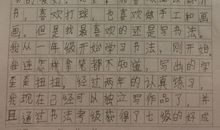 书，喜欢打球，也喜欢做手工和画
画，但是我最喜欢的还是写书法。
我从一年级开始学习书法，刚开始
我连怎样拿笔都不知道，写出的字
歪歪扭扭，经过两年的认真练习，
我现在已经可以独立写作品了，并
且通过书法考级获得了七级的好成